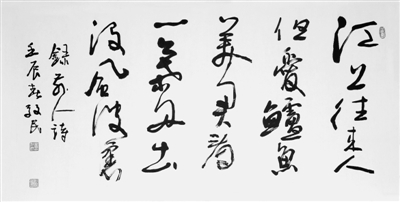 江上往来人
但愛鱸魚
美君看
一葉舟出
没風波裏
録前人詩
壬辰